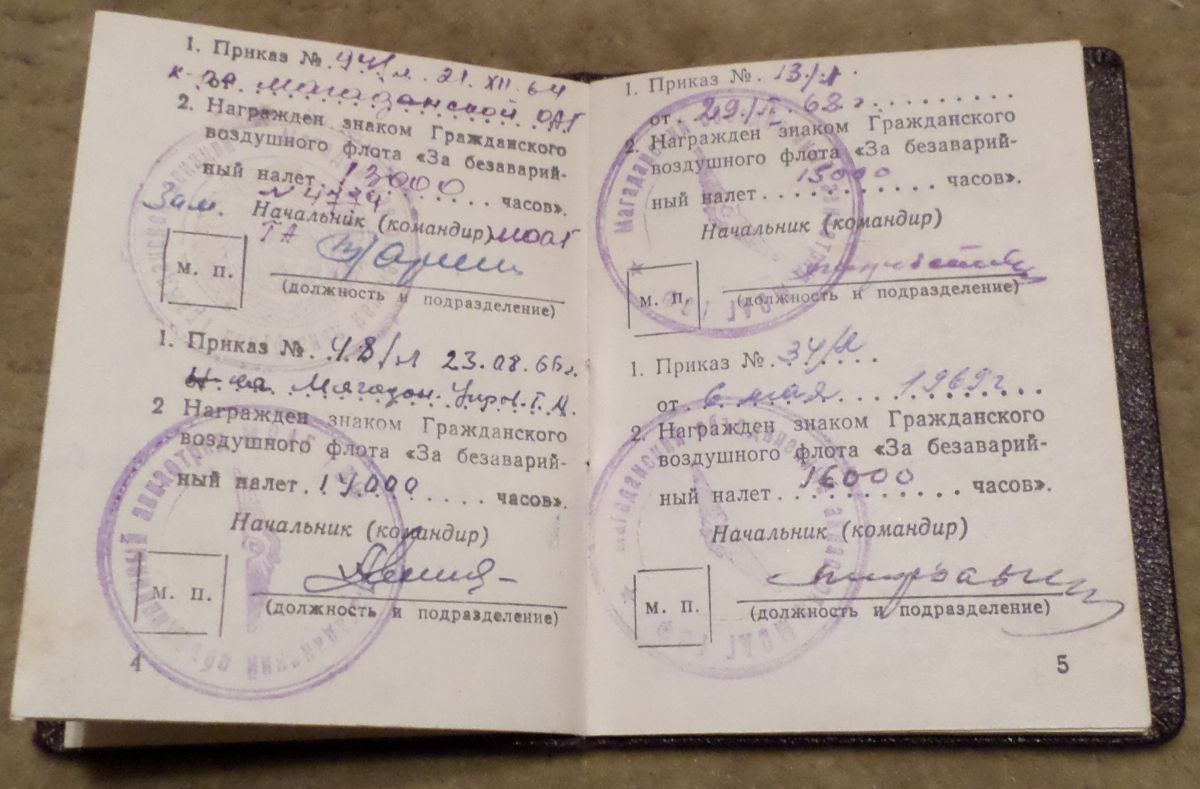 1. Приказ № 94/л. 21. XII. 64
к-ра Магаданской ОАГ
2. Награжден знаком Гражданского
воздушного флота «За безаварий-
ный налет 13000 часов».
№ 4774
Зам. Начальник (командир) МОАГ
ГА
м. п.
(должность и подразделение)
1. Приказ № 48/л 23.08.66г.
Магадан. Упр. Г.А.
2 Награжден знаком Гражданского
воздушного флота «За безаварий-
ный налет 14000 часов».
Начальник (командир)
м. п.
(должность и подразделение)
4
1. Приказ № 13/л
от 29/II 68 г.
2. Награжден знаком Гражданского
воздушного флота «За безаварий-
ный налет 15000 часов».
Начальник (командир)
м. п.
(должность и подразделение)
1. Приказ № 34/л
от 6 мая 1969г
2. Награжден знаком Гражданского
воздушного флота «За безаварий-
ный налет 16000 часов».
Начальник (командир)
м. п.
(должность и подразделение)
5